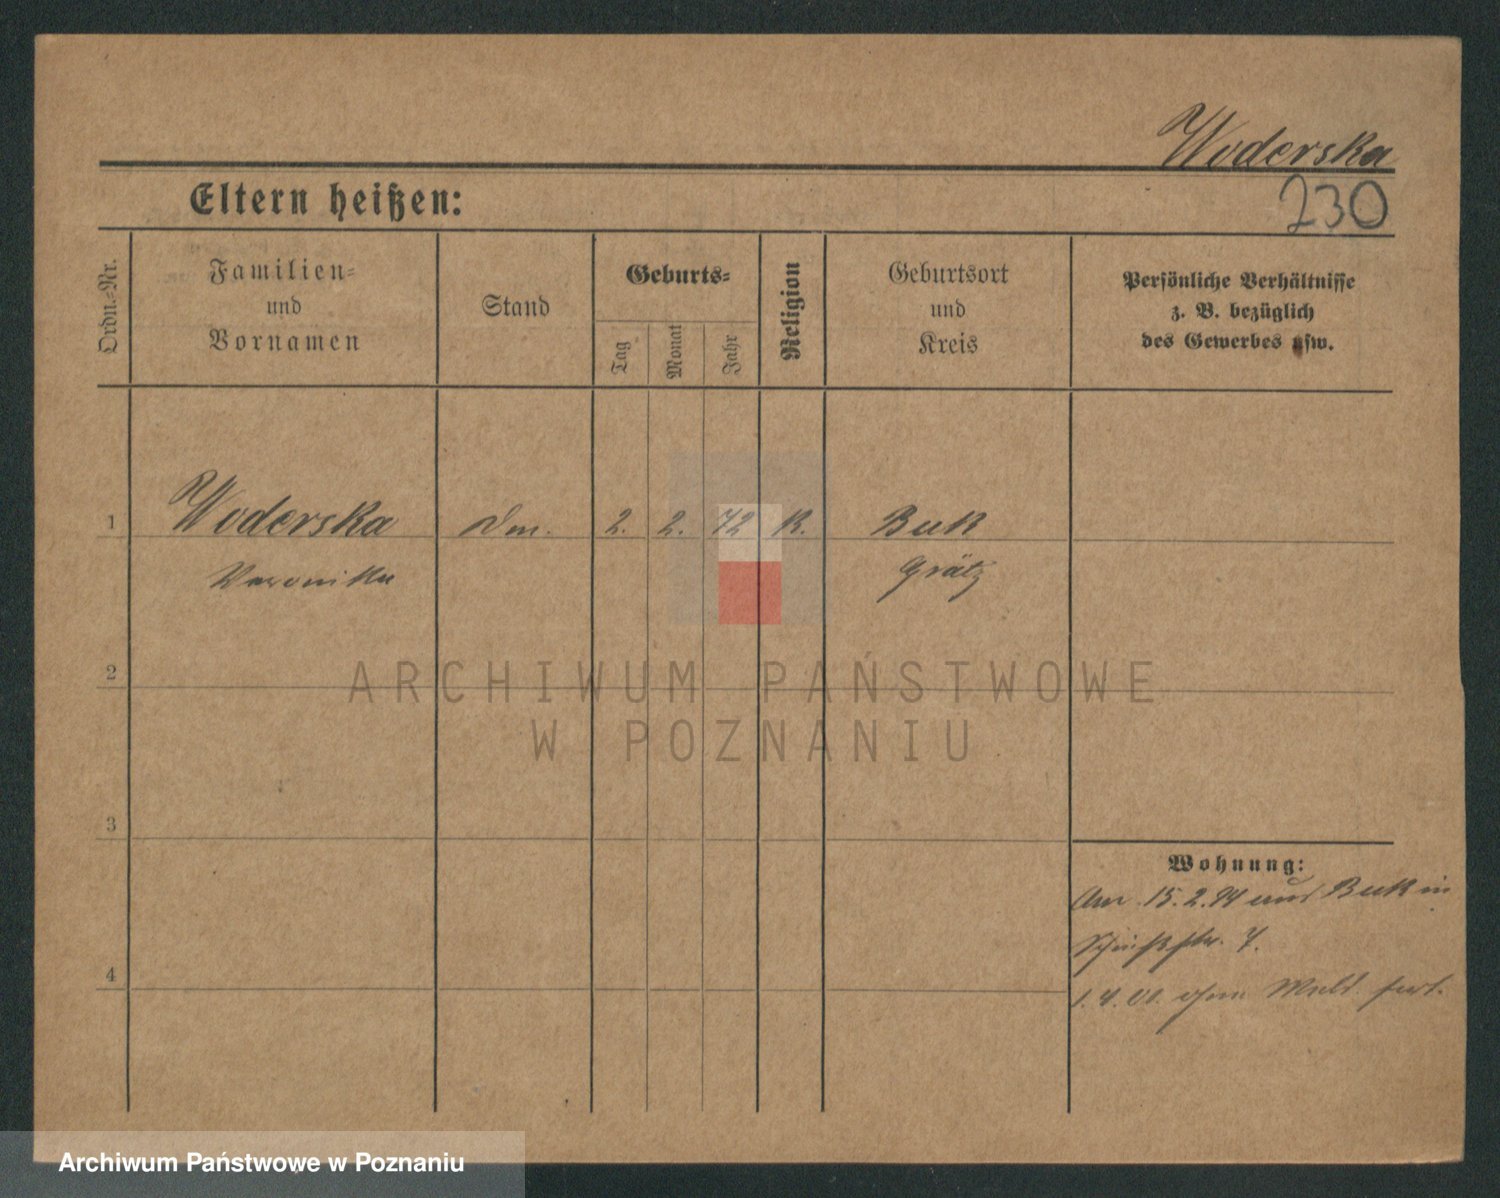 Woderska
230
Eltern heißen:
Ordn.-Nr.
Familien-
und
Vornamen
Stand
Geburts-
Tag
Monat
Jahr
Religion
Geburtsort
und
Kreis
Persönliche Verhältnisse
z. B. bezüglich
des Gewerbes usw.
1
Woderska
2. 2. 72
K.
Buk
Veronika
Grätz
2
ARCHIWUM PAŃSTWOWE
W POZNANIU
3
Wohnung:
15.2.94 aus Buk in
7.
4
ohne Meld. fort.
Archiwum Państwowe w Poznaniu